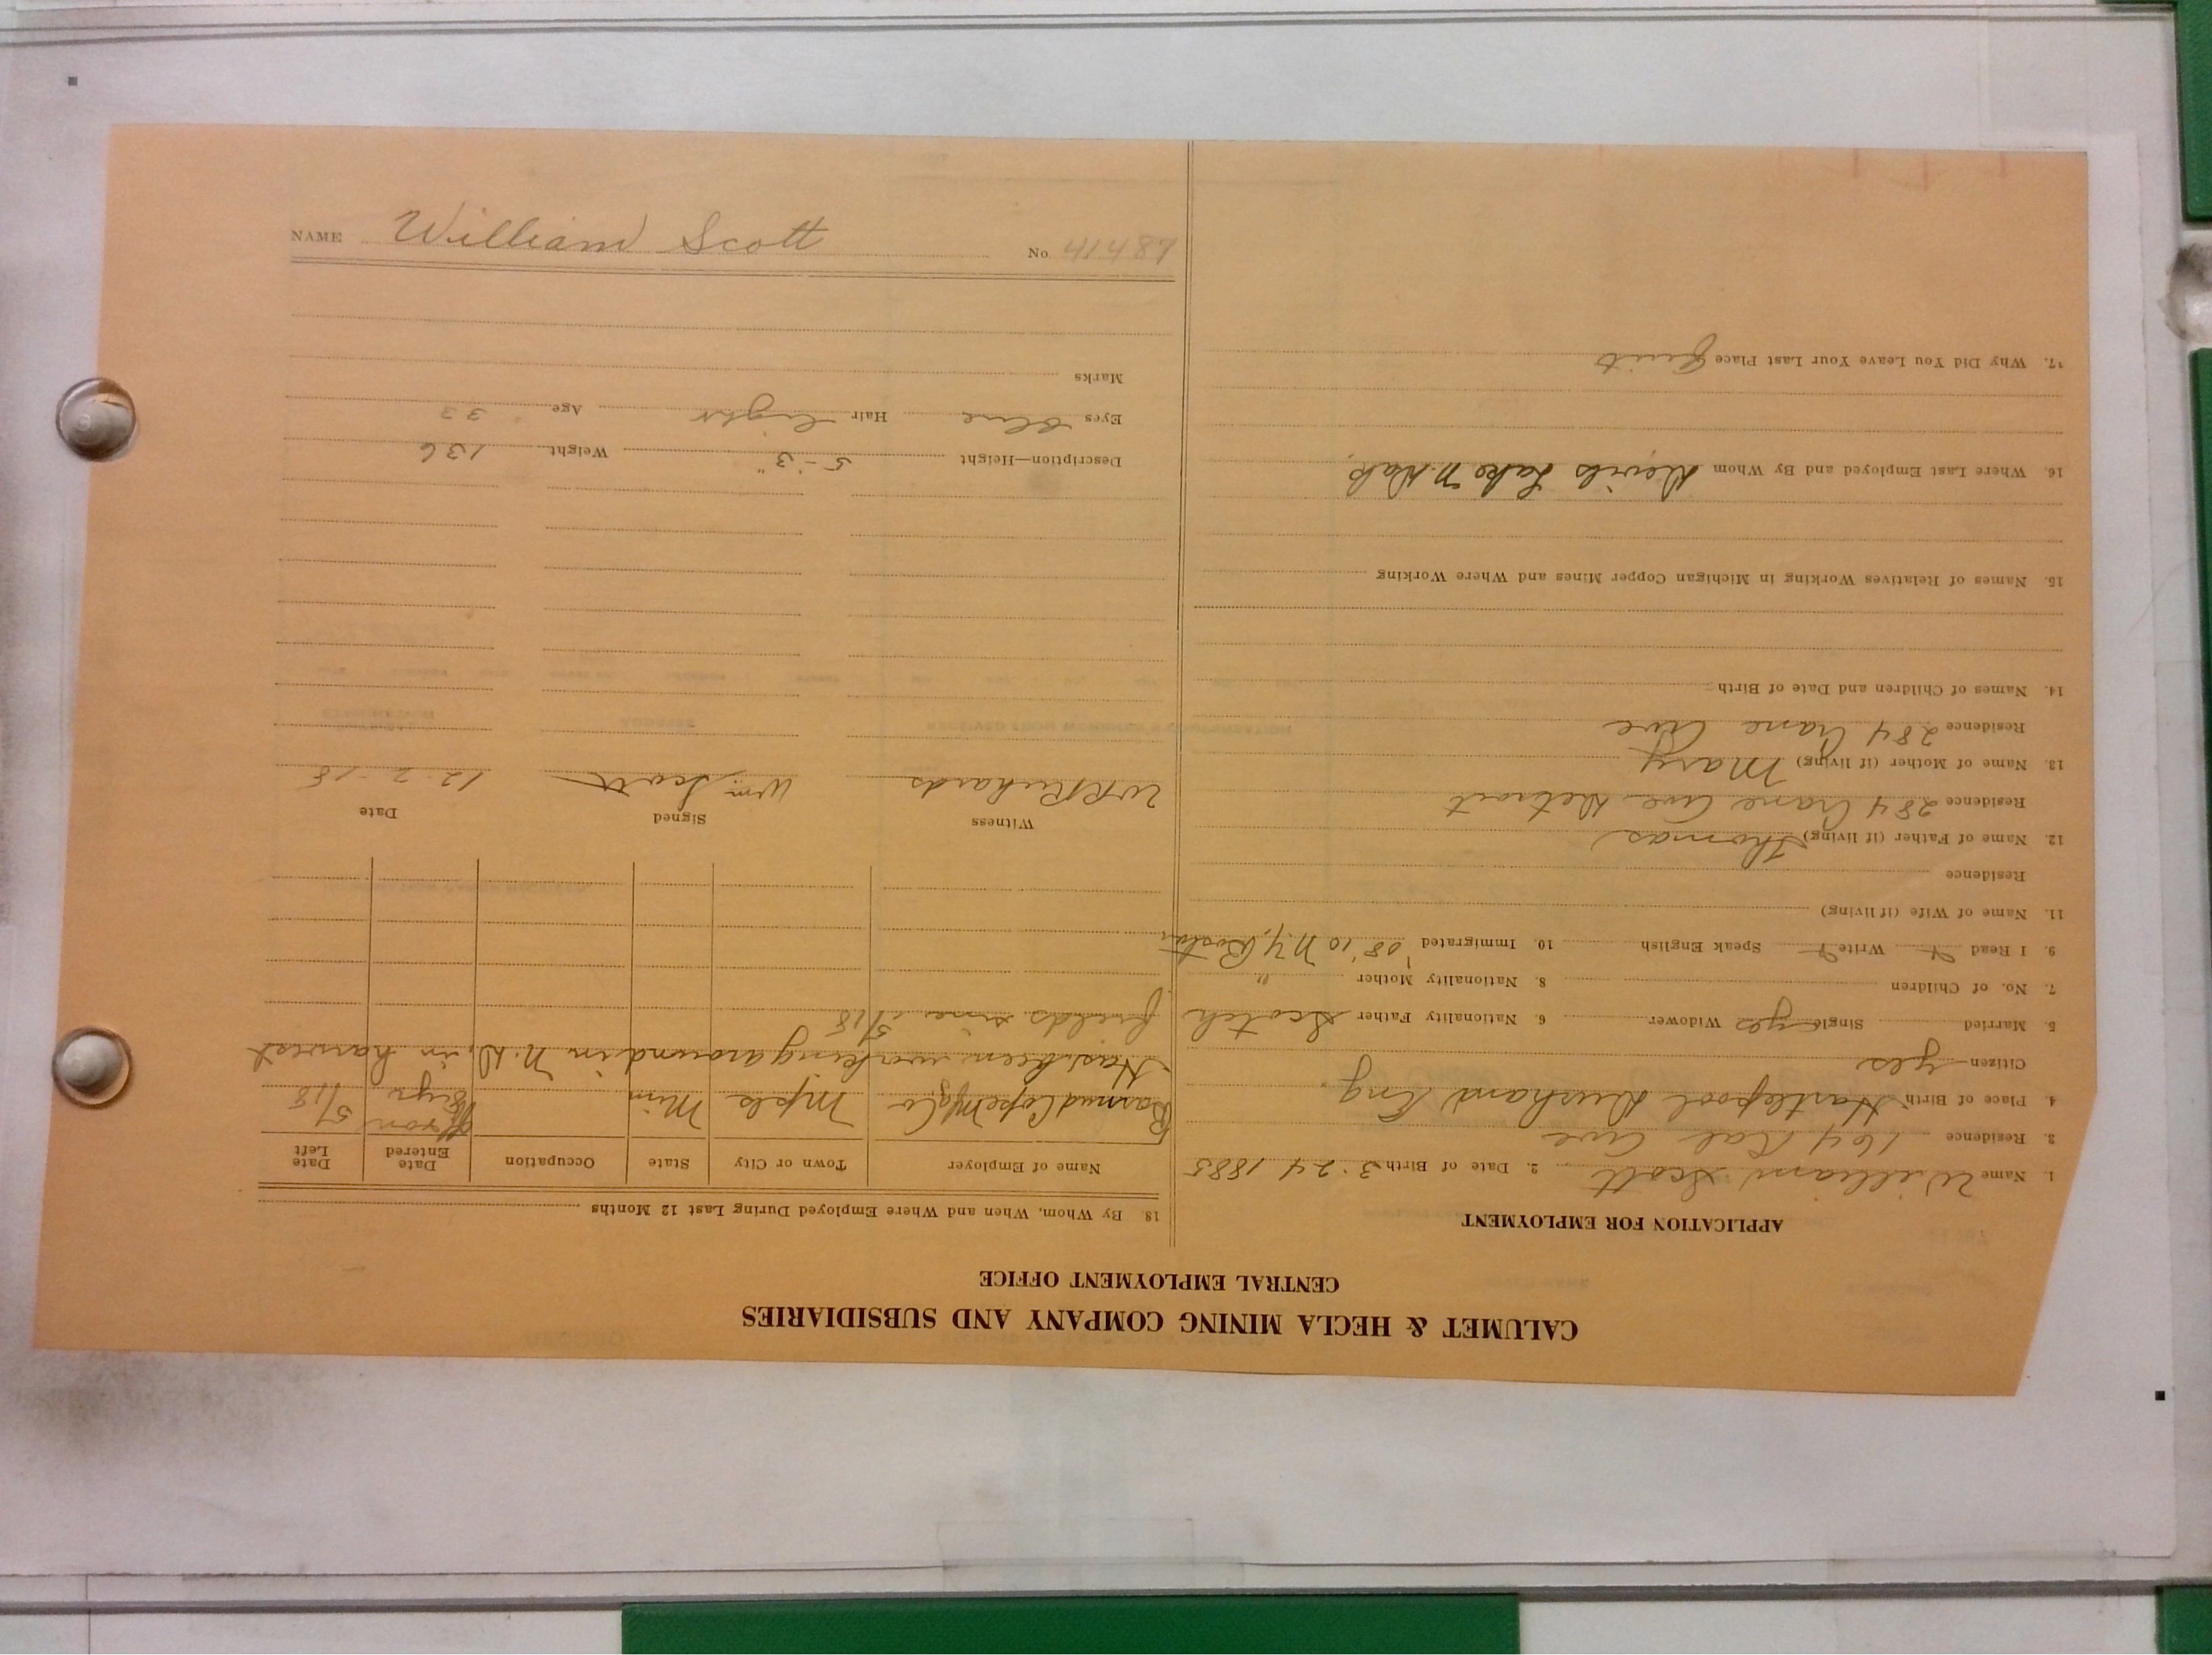 CALUMET & HECLA MINING COMPANY AND SUBSIDIARIES
CENTRAL EMPLOYMENT OFFICE
APPLICATION FOR EMPLOYMENT
1. Name William Scott 2. Date of Birth 3-24 1885
3. Residence 164 Cal Ave
4. Place of Birth Hartlepool Durham Eng.
Citizen yes
5. Married Single yes Widower 6. Nationality Father Scotch
7. No. of Children 8. Nationality Mother "
9. I Read Write Speak English 10. Immigrated '08 '10 N.Y, Boston
11. Name of Wife (if living)
Residence
12. Name of Father (if living) Thomas
Residence 284 Crane Ave Detroit
13. Name of Mother (if living) Mary
Residence 284 Crane Ave
14. Names of Children and Date of Birth
15. Names of Relatives Working in Michigan Copper Mines and Where Working
16. Where Last Employed and By Whom Devils Lake N. Dak.
17. Why Did You Leave Your Last Place Quit
18. By Whom, When and Where Employed During Last 12 Months
Name of Employer Town or City State Occupation Date Entered Date Left
Mfg Co Mpls Min 5/18
Has been working around in N.D. in harvest
fields since 5/18
Witness Signed Date
W R Richards Wm Scott 12-2-18
Description—Height 5-'3" Weight 136
Eyes blue Hair light Age 33
Marks
NAME William Scott No. 41487